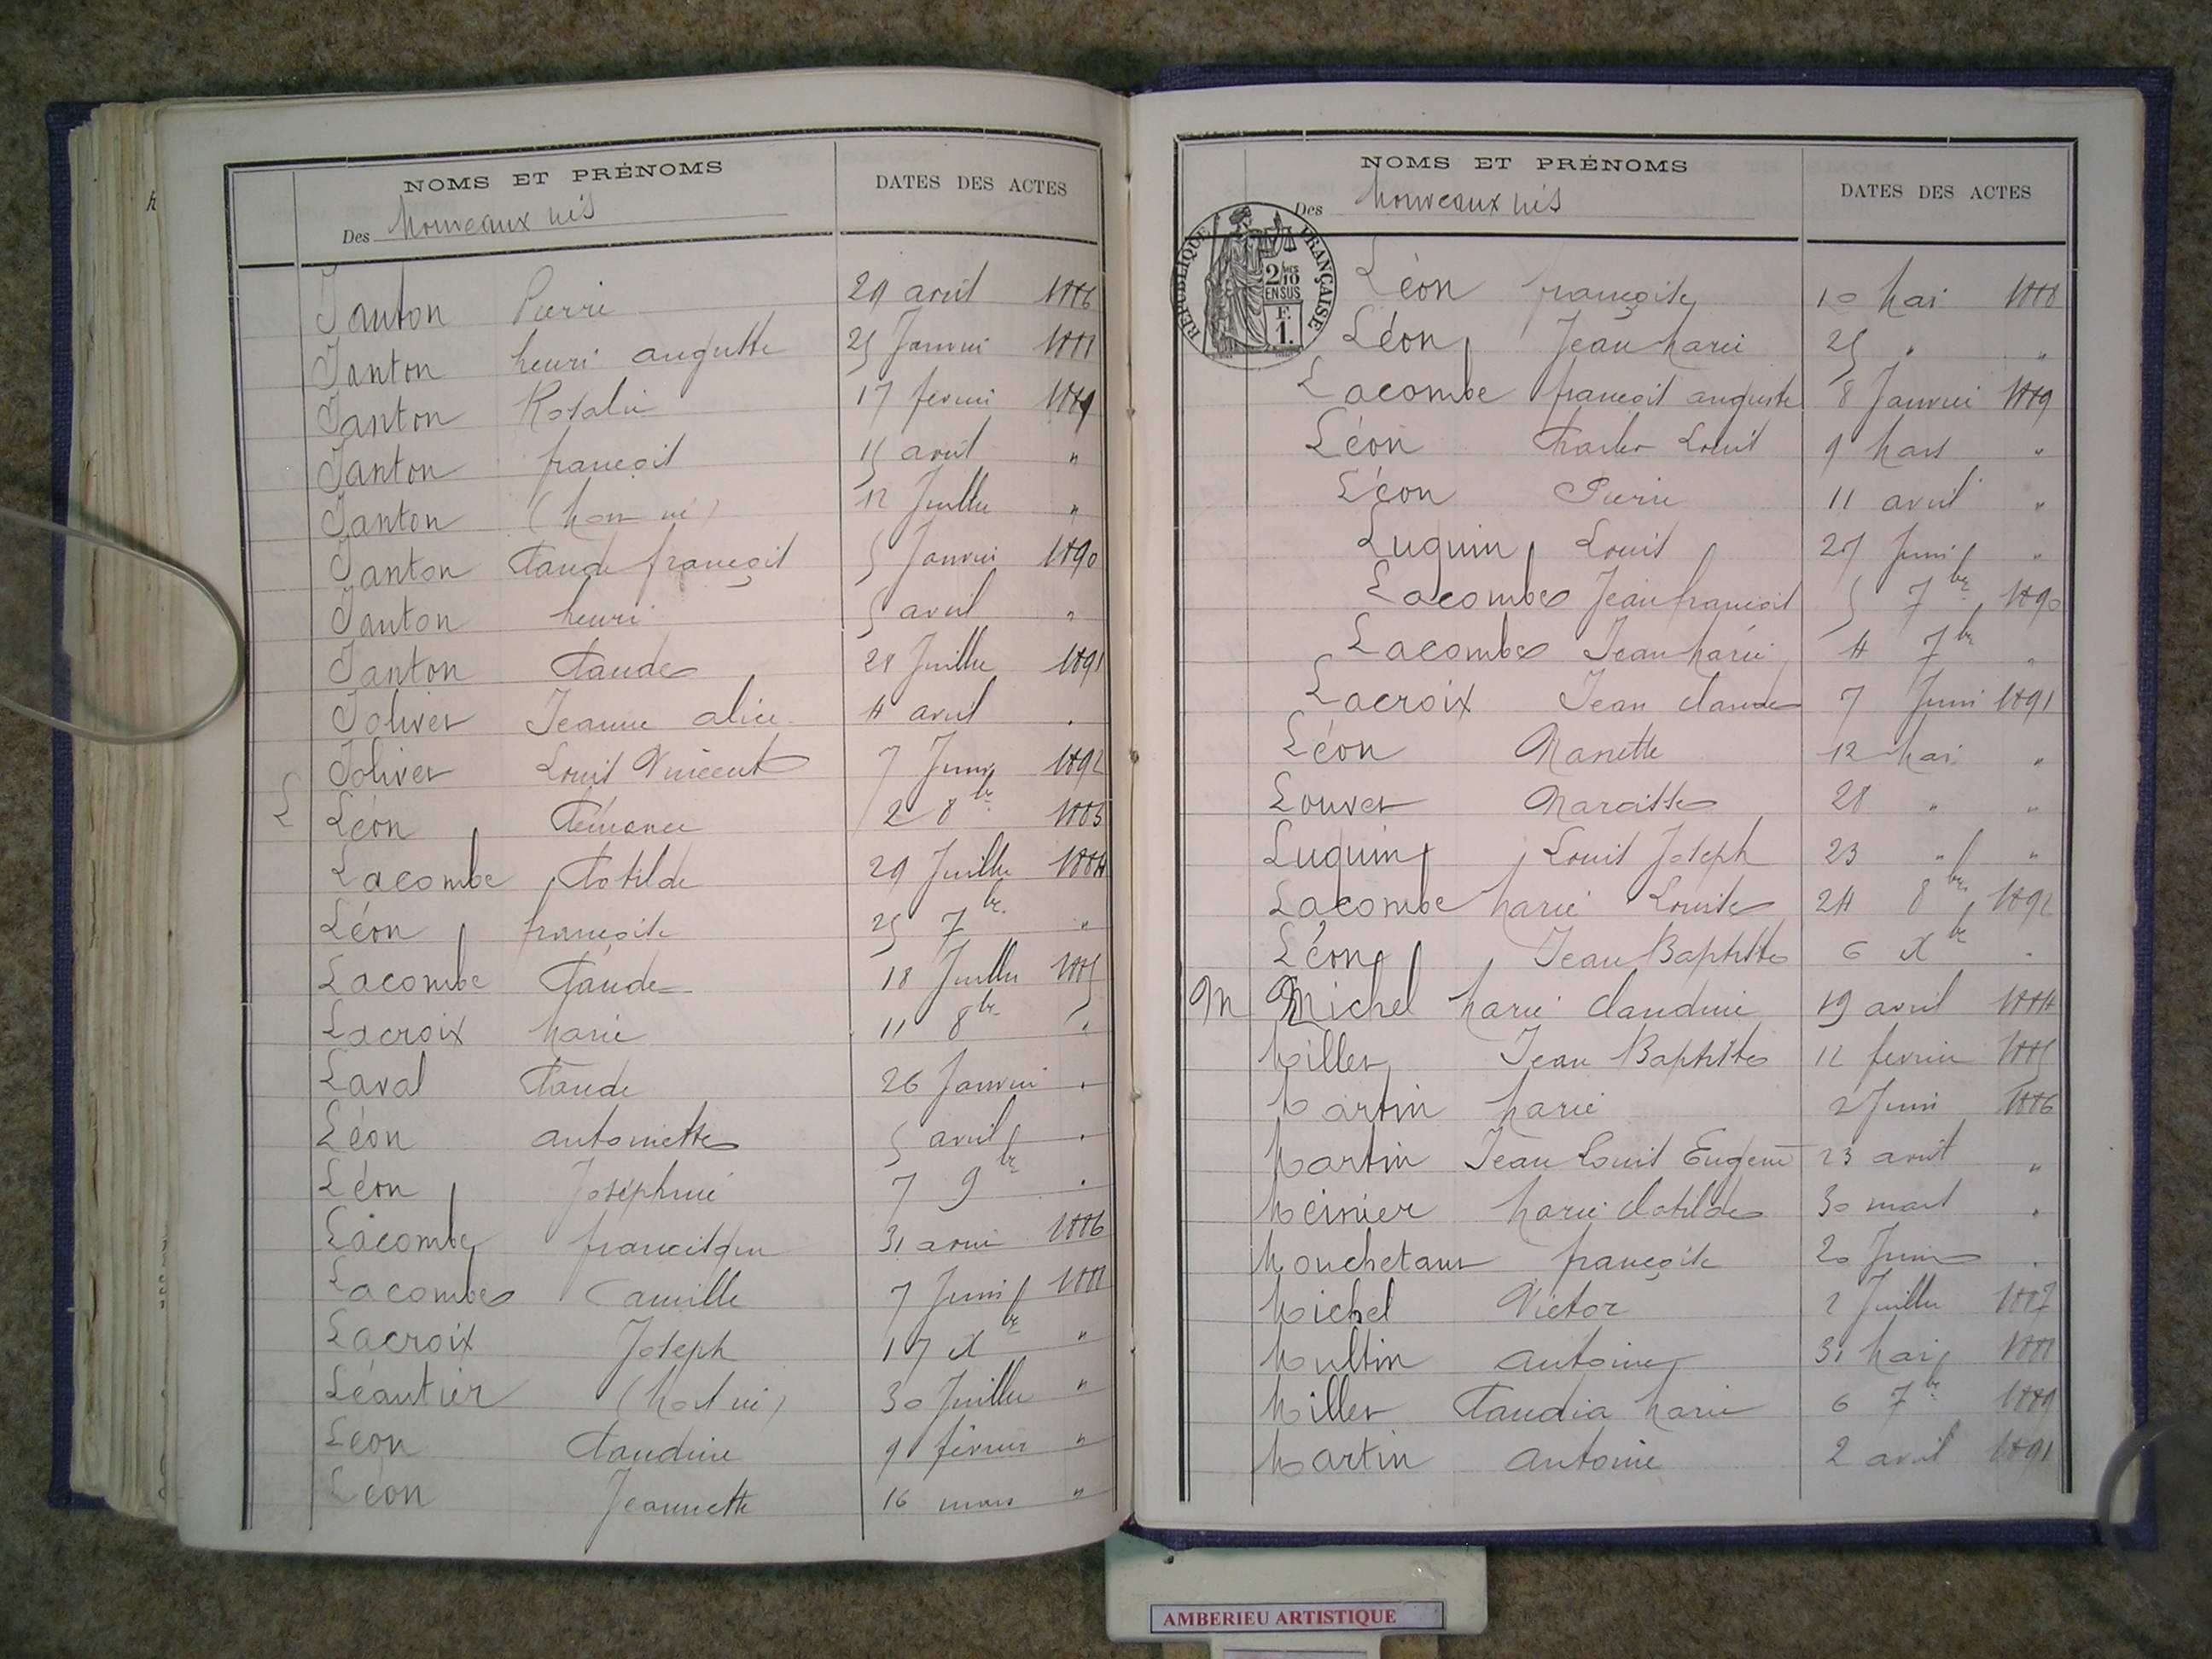 NOMS ET PRÉNOMS DATES DES ACTES
Des Nouveaux nés
Janton Pierre 29 avril 1886
Janton henri auguste 25 Janvier 1888
Janton Rosalie 17 fevrier 1889
Janton françois 15 avril "
Janton 12 Juillet "
Janton Claude françois 5 Janvier 1890
Janton henri 5 avril "
Janton Claude 28 Juillet 1891
Jolivet Jeanne alice 4 avril "
Jolivet Louis Vincent 7 Juin 1892
L Léon Clémence 2 8bre 1883
Lacombe Clotilde 29 Juillet 1884
Léon françoise 25 7bre "
Lacombe Claude 18 Juillet 1885
Lacroix Marie 11 8bre "
Laval Claude 26 Janvier "
Léon antoinette 5 avril "
Léon Joséphine 7 9bre "
Lacombe francisque 31 1886
Lacombe Camille 7 Juin 1888
Lacroix Joseph 17 Xbre "
Léautier (Mort né) 30 Juillet "
Léon Claudine 9 février "
Léon Jeannette 16 mars "
NOMS ET PRÉNOMS DATES DES ACTES
Des Nouveaux nés
RÉPUBLIQUE FRANÇAISE
2/10 EN SUS
F. 1.
Léon françoise 10 Mai 1888
Léon Jean Marie 25 " "
Lacombe françois auguste 8 Janvier 1889
Léon Charles Louis 9 Mars "
Léon Pierre 11 avril "
Luquin Louis 27 Juin "
Lacombe Jean françois 5 7bre 1890
Lacombe Jean Marie 4 7bre "
Lacroix Jean Claude 7 Juin 1891
Léon Nanette 12 Mai "
Louvet Narcisse 28 " "
Luquin Louis Joseph 23 " "
Lacombe Marie Louise 24 8bre 1892
Léon Jean Baptiste 6 Xbre "
M Michel Marie Claudine 19 avril 1884
Millet Jean Baptiste 12 fevrier 1885
Martin Marie 2 Juin 1886
Martin Jean Louis Eugene 23 "
Meinier Marie Clotilde 30 mars "
françoise 20 Juin "
Michel Victor 2 Juillet 1887
Multin Antoine 31 Mai 1888
Millet Claudia Marie 6 7bre 1889
Martin Antoine 2 avril 1891
AMBERIEU ARTISTIQUE